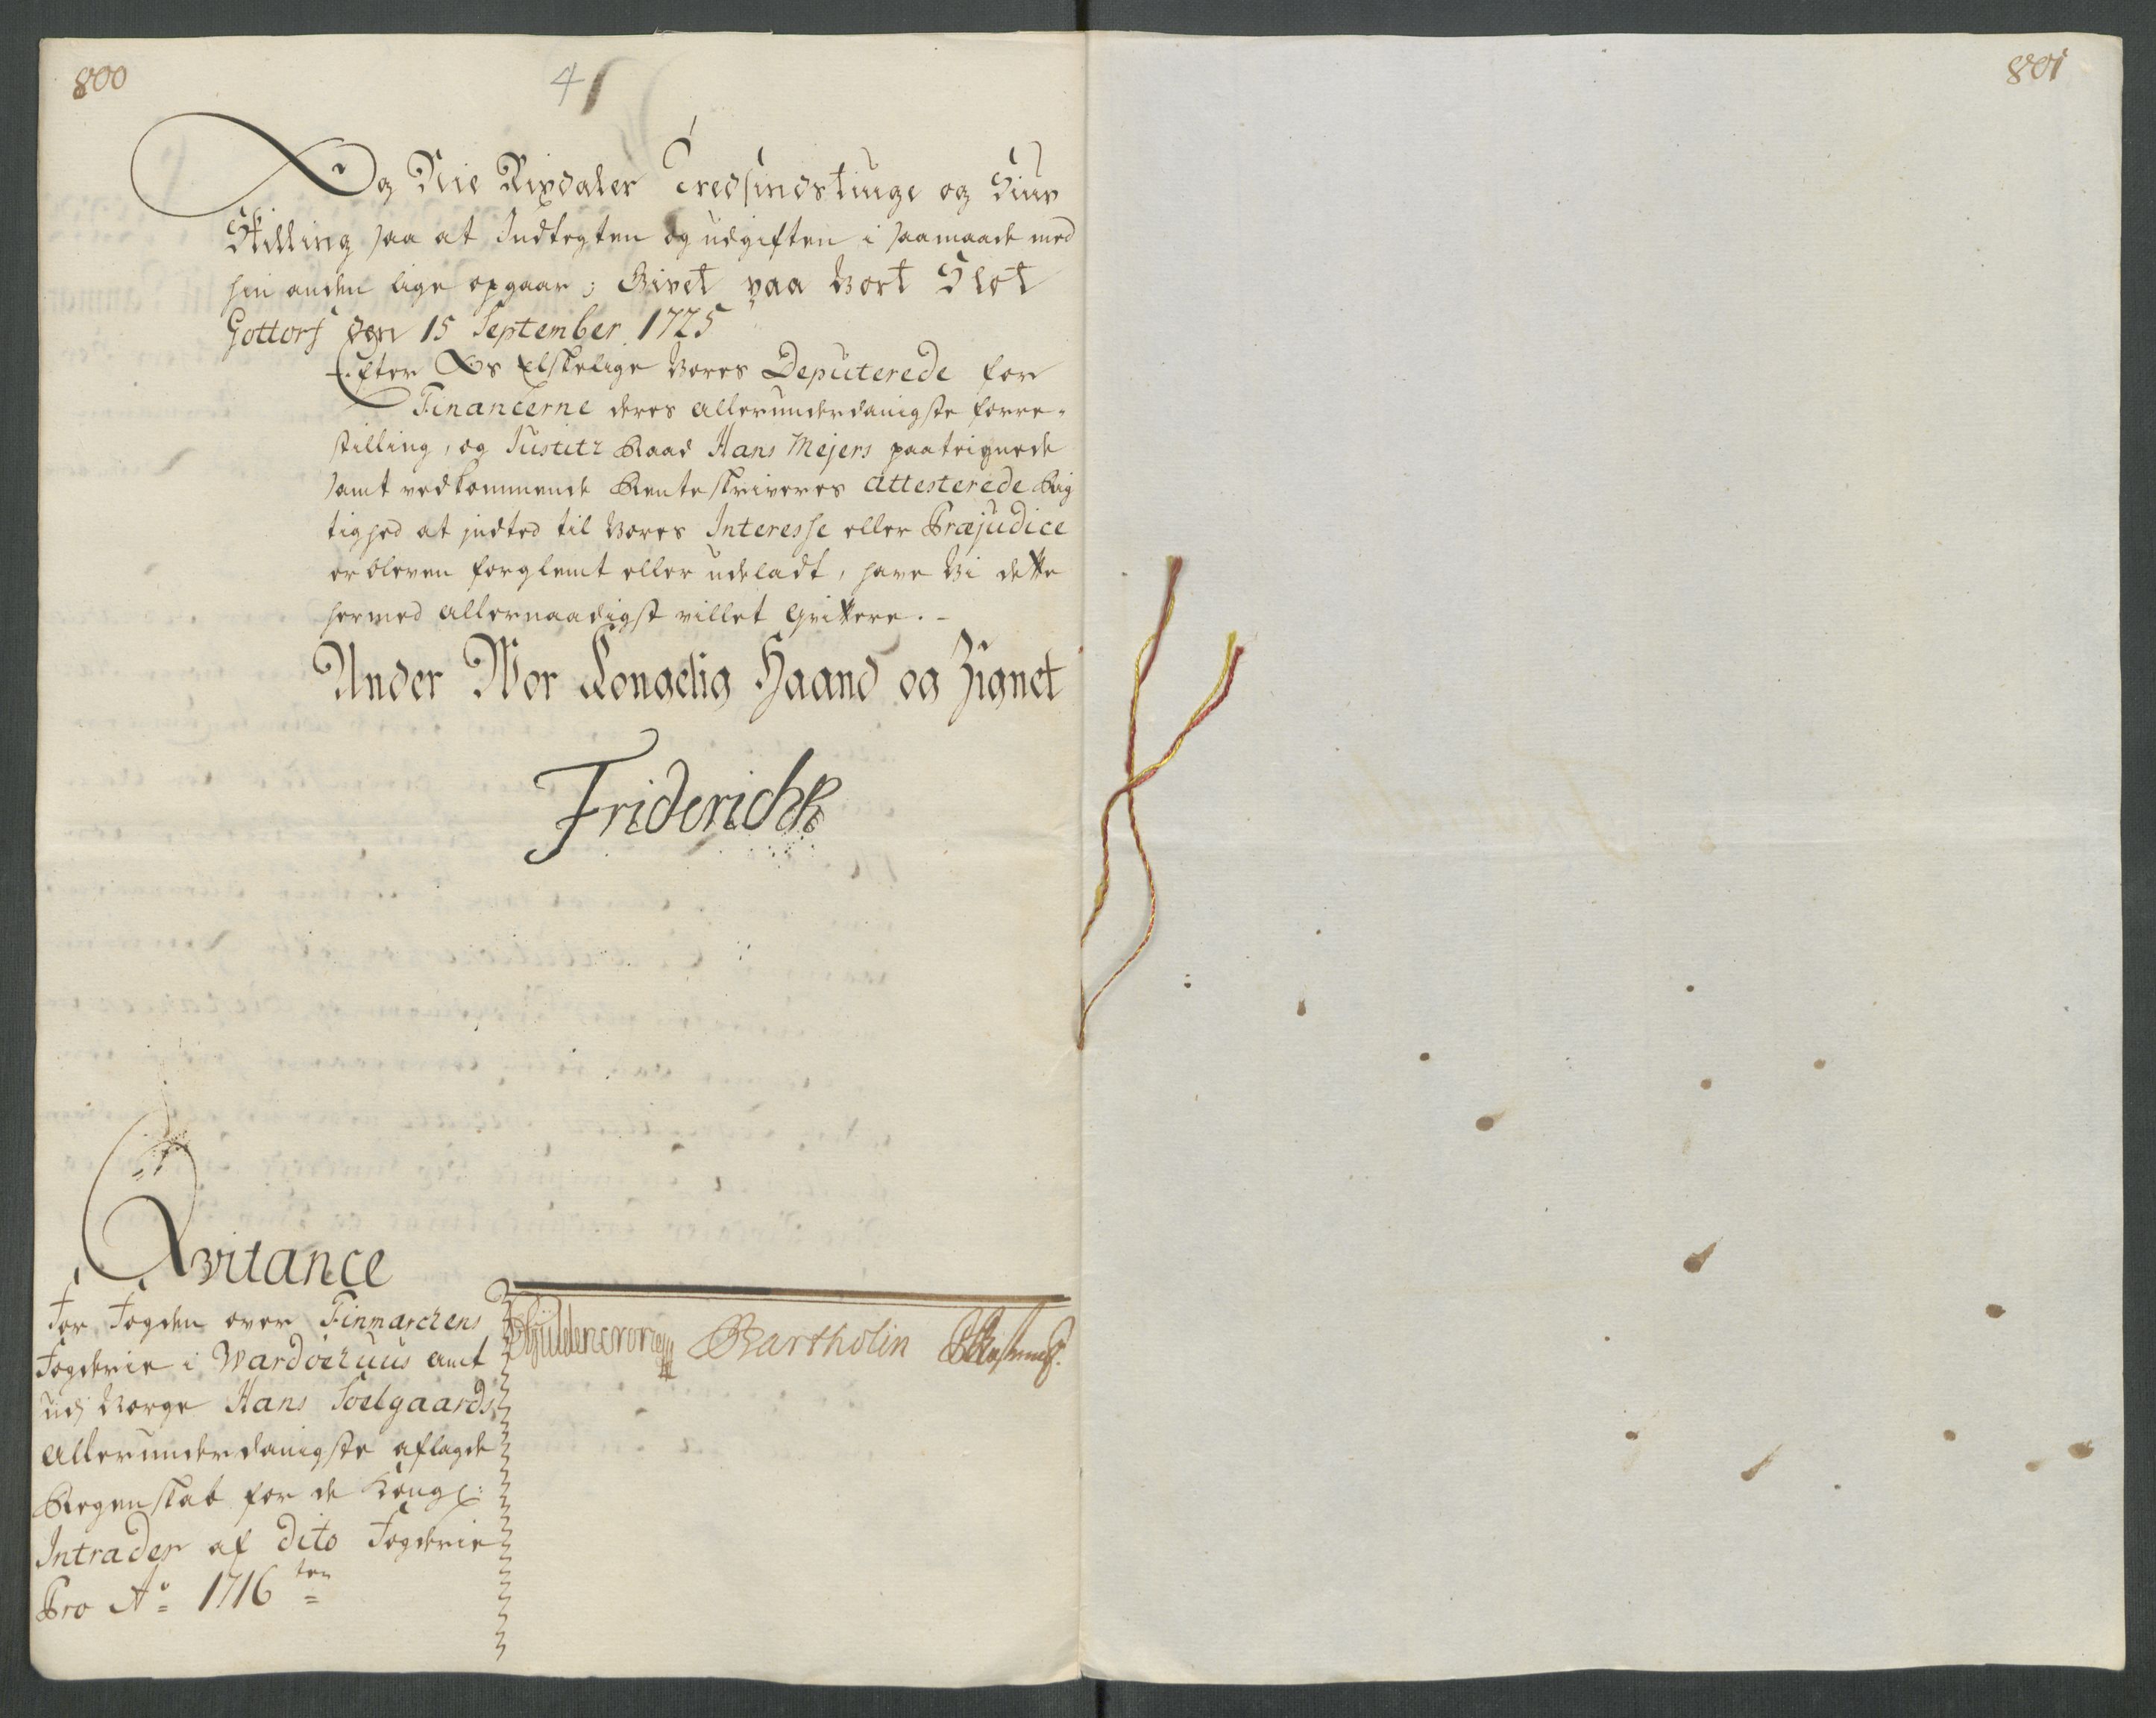 800
41
801
Og Nie Rixdaler Tredsindstiuge og Siuv
Skilling saa at Indtegten og udgiften i saamaade med
hin anden lige opgaar; Givet paa Vort Slot
Gottorf den 15 September 1725
Efter Os Elskelige Vores Deputerede for
Financerne deres allerunderdanigste forre-
stilling, og Justitz Raad Hans Mejers paateignede
samt vedkommende Renteskriveres Attesterede Rig
tighed at indted til Vores Interesse eller Præjudice
er bleven forglemt eller udeladt, have Vi dette
hermed allernaadigst villet Qvittere.-
Under Wor Kongelig Haand og Zignet
FriderichR
Qvitance
For Fogden over Finmarchens
Fogderie i Wardoehuus amt
udj Norge Hans Soelgaards
Allerunderdanigste aflagde
Regenskab for de Kongl:
Intrader af dito Fogderie
Pro Ao 1716 ten
Güldencrone Bartholin